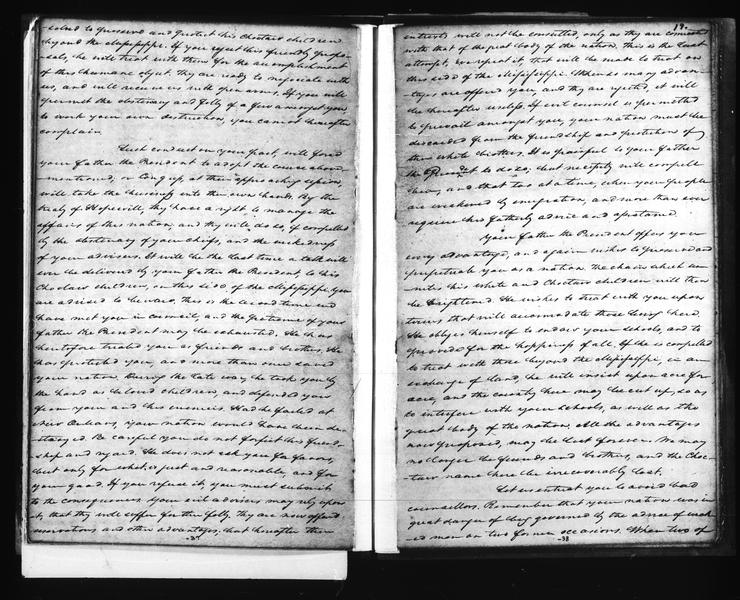 solved to preserve and protect his Choctaw children
beyond the Mississippi. If you reject this friendly propo-
sals, he will treat with them for the accomplishment
of this humane object. They are ready to negociate with
us, and will receive us with open arms. If you will
permit the obstinacy and folly of a few amongst you
to work your own destruction, you cannot hereafter
complain
Such conduct on your part, will force
your father the President to adopt the course above
mentioned, or Congress, at their approaching session,
will take the business into their own hands. By the
treaty of Hopewell, they have a right to manage the
affairs of this nation, and they will do so, if compelled
by the obstinacy of your chiefs, and the wickedness
of your advisers. It will be the last time a talk will
ever be delivered by your father the President, to his
Choctaw children, on this side of the Mississippi. You
are advised to beware, this is the second time we
have met you in council, and the patience of your
father the President may be exhausted. He has
heretofore treated you as friends and brothers. He
has protected you, and more than once saved
your nation. During the late war he took you by
the hand as beloved children, and defended you
from your and his enemies. Had he failed at
New Orleans, your nation would have been de-
stroyed. Be careful you do not forfeit this friend-
ship and regard. He does not ask you for favors,
but only for what is just and reasonable, and for
your good. If you refuse it, you must submit
to the consequences. Your evil advisers may rely upon
it, that they will suffer for their folly. They are now offered
reservations and other advantages, but hereafter their
19.
interests will not be consulted, only as they are connected
with that of the great body of the nation. This is the last
attempt, we repeat it, that will be made to treat on
this side of the Mississippi. When so many advan-
tages are offered you, and they are rejected, it will
be hereafter useless. If evil counsel is permitted
to prevail amongst you, your nation must be
discarded from the friendship and protection of
their white brothers. It is painful to your father
the President to do so; but necessity will compell
him, and that too at a time, when your people
are weakened by emigration, and more than ever
require his fatherly advice and assistance.
Your father the President offers you
every advantage, and again wishes to preserve and
perpetuate you as a nation. The chain which u-
nites his white and Choctaw children will then
be brightened. He wishes to treat with you upon
terms that will accommodate those living here.
He obliges himself to endow your schools, and to
provide for the happiness of all. If he is compelled
to treat with those beyond the Mississippi, in an
exchange of land, he will insist upon acre for
acre, and the country here may be cut up, so as
to interfere with your schools, as well as the
great body of the nation. All the advantages
now proposed, may be lost forever. We may
no longer be friends and brothers, and the Choc-
taw name here be irrecoverably lost.
Let us entreat you to avoid bad
counsellors. Remember that your nation was in
great danger of being governed by the advice of wick-
ed men on two former occasions. When two of
-38